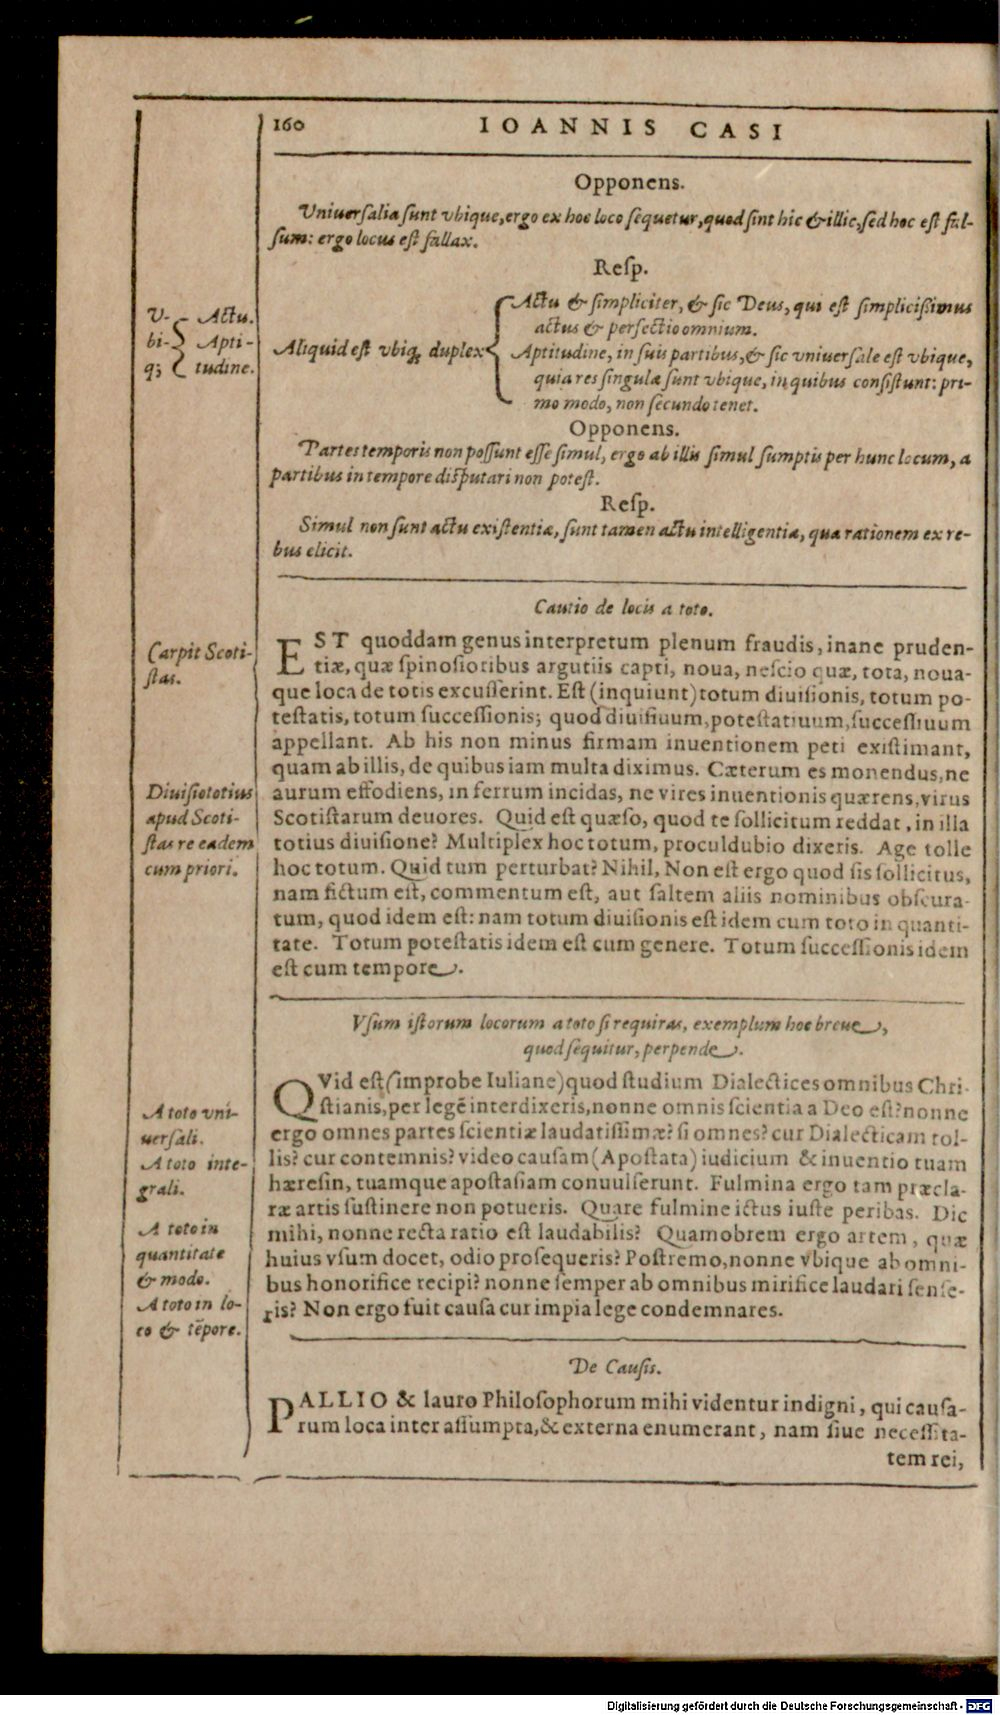 160 IOANNIS CASI
Opponens.
Vniuerſalia ſunt vbique, ergo ex hoc loco ſequetur, quod ſint hic & illic, ſed hoc eſt fal-
ſum: ergo locus eſt fallax.
Reſp.
V-
bi-
q;
Actu.
Apti-
tudine.
Aliquid eſt vbiq; duplex
Actu & ſimpliciter, & ſic Deus, qui eſt ſimpliciſſimus
actus & perfectio omnium.
Aptitudine, in ſuis partibus, & ſic vniuerſale eſt vbique,
quia res ſingulæ ſunt vbique, in quibus conſiſtunt: pri-
mo modo, non ſecundo tenet.
Opponens.
Partes temporis non poſſunt eſſe ſimul, ergo ab illis ſimul ſumptis per hunc locum, a
partibus in tempore diſputari non poteſt.
Reſp.
Simul non ſunt actu exiſtentiæ, ſunt tamen actu intelligentiæ, quæ rationem ex re-
bus elicit.
Cautio de locis a toto.
Carpit Scoti-
ſtas.
EST quoddam genus interpretum plenum fraudis, inane pruden-
tiæ, quæ ſpinoſioribus argutiis capti, noua, neſcio quæ, tota, noua-
que loca de totis excuſſerint. Eſt (inquiunt) totum diuiſionis, totum po-
teſtatis, totum ſucceſſionis; quod diuiſiuum, poteſtatiuum, ſucceſſiuum
appellant. Ab his non minus firmam inuentionem peti exiſtimant,
quam ab illis, de quibus iam multa diximus. Cæterum es monendus, ne
aurum effodiens, in ferrum incidas, ne vires inuentionis quærens, virus
Scotiſtarum deuores. Quid eſt quæſo, quod te ſollicitum reddat, in illa
totius diuiſione? Multiplex hoc totum, proculdubio dixeris. Age tolle
hoc totum. Quid tum perturbat? Nihil, Non eſt ergo quod ſis ſollicitus,
nam fictum eſt, commentum eſt, aut ſaltem aliis nominibus obſcura-
tum, quod idem eſt: nam totum diuiſionis eſt idem cum toto in quanti-
tate. Totum poteſtatis idem eſt cum genere. Totum ſucceſſionis idem
eſt cum tempore.
Diuiſio totius
apud Scoti-
ſtas re eadem
cum priori.
Vſum iſtorum locorum a toto ſi requiras, exemplum hoc breue,
quod ſequitur, perpende.
QVid eſt (improbe Iuliane) quod ſtudium Dialectices omnibus Chri-
ſtianis, per legē interdixeris, nonne omnis ſcientia a Deo eſt? nonne
ergo omnes partes ſcientiæ laudatiſſimæ? ſi omnes? cur Dialecticam tol-
lis? cur contemnis? video cauſam (Apoſtata) iudicium & inuentio tuam
hæreſin, tuamque apoſtaſiam conuulſerunt. Fulmina ergo tam præcla-
ræ artis ſuſtinere non potueris. Quare fulmine ictus iuſte peribas. Dic
mihi, nonne recta ratio eſt laudabilis? Quamobrem ergo artem, quæ
huius vſum docet, odio proſequeris? Poſtremo, nonne vbique ab omni-
bus honorifice recipi? nonne ſemper ab omnibus mirifice laudari ſenſe-
ris? Non ergo fuit cauſa cur impia lege condemnares.
A toto vni-
uerſali.
A toto inte-
grali.
A toto in
quantitate
& modo.
A toto in lo-
co & tēpore.
De Cauſis.
PALLIO & lauro Philoſophorum mihi videntur indigni, qui cauſa-
rum loca inter aſſumpta, & externa enumerant, nam ſiue neceſſita-
tem rei,
Digitalisierung gefördert durch die Deutsche Forschungsgemeinschaft - DFG